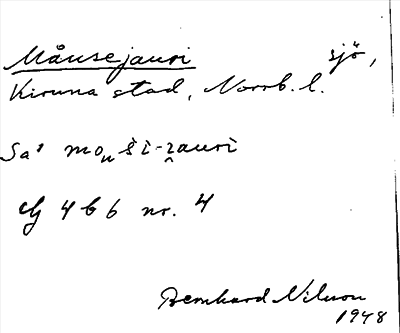 Månsejauri sjö,
Kiruna stad, Norrb. l.
Sa' moₙši-i̯auri
466 nr. 4
Bernhard Nilsson
1948